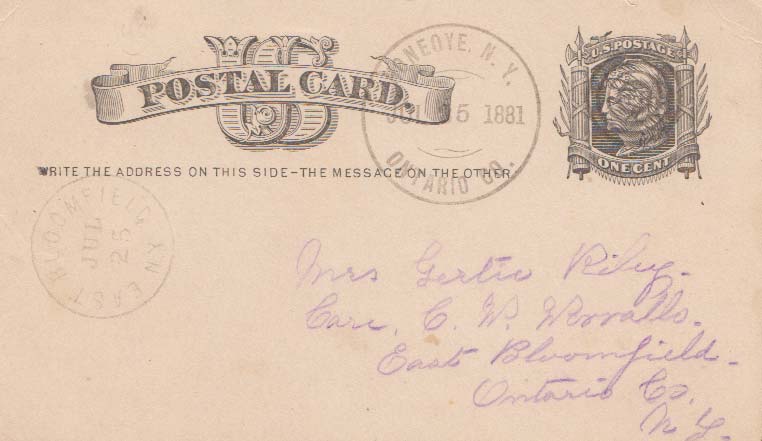 US
POSTAL CARD.
U.S. POSTAGE
ONE CENT
NEOYE, N. Y.
5 1881
ONTARIO CO.
WRITE THE ADDRESS ON THIS SIDE-THE MESSAGE ON THE OTHER
EAST BLOOMFIELD NY
JUL
25
Mrs Gertie Riley.
Care. C. W. Worralls.
East Bloomfield.
Ontario Co.
N.Y.